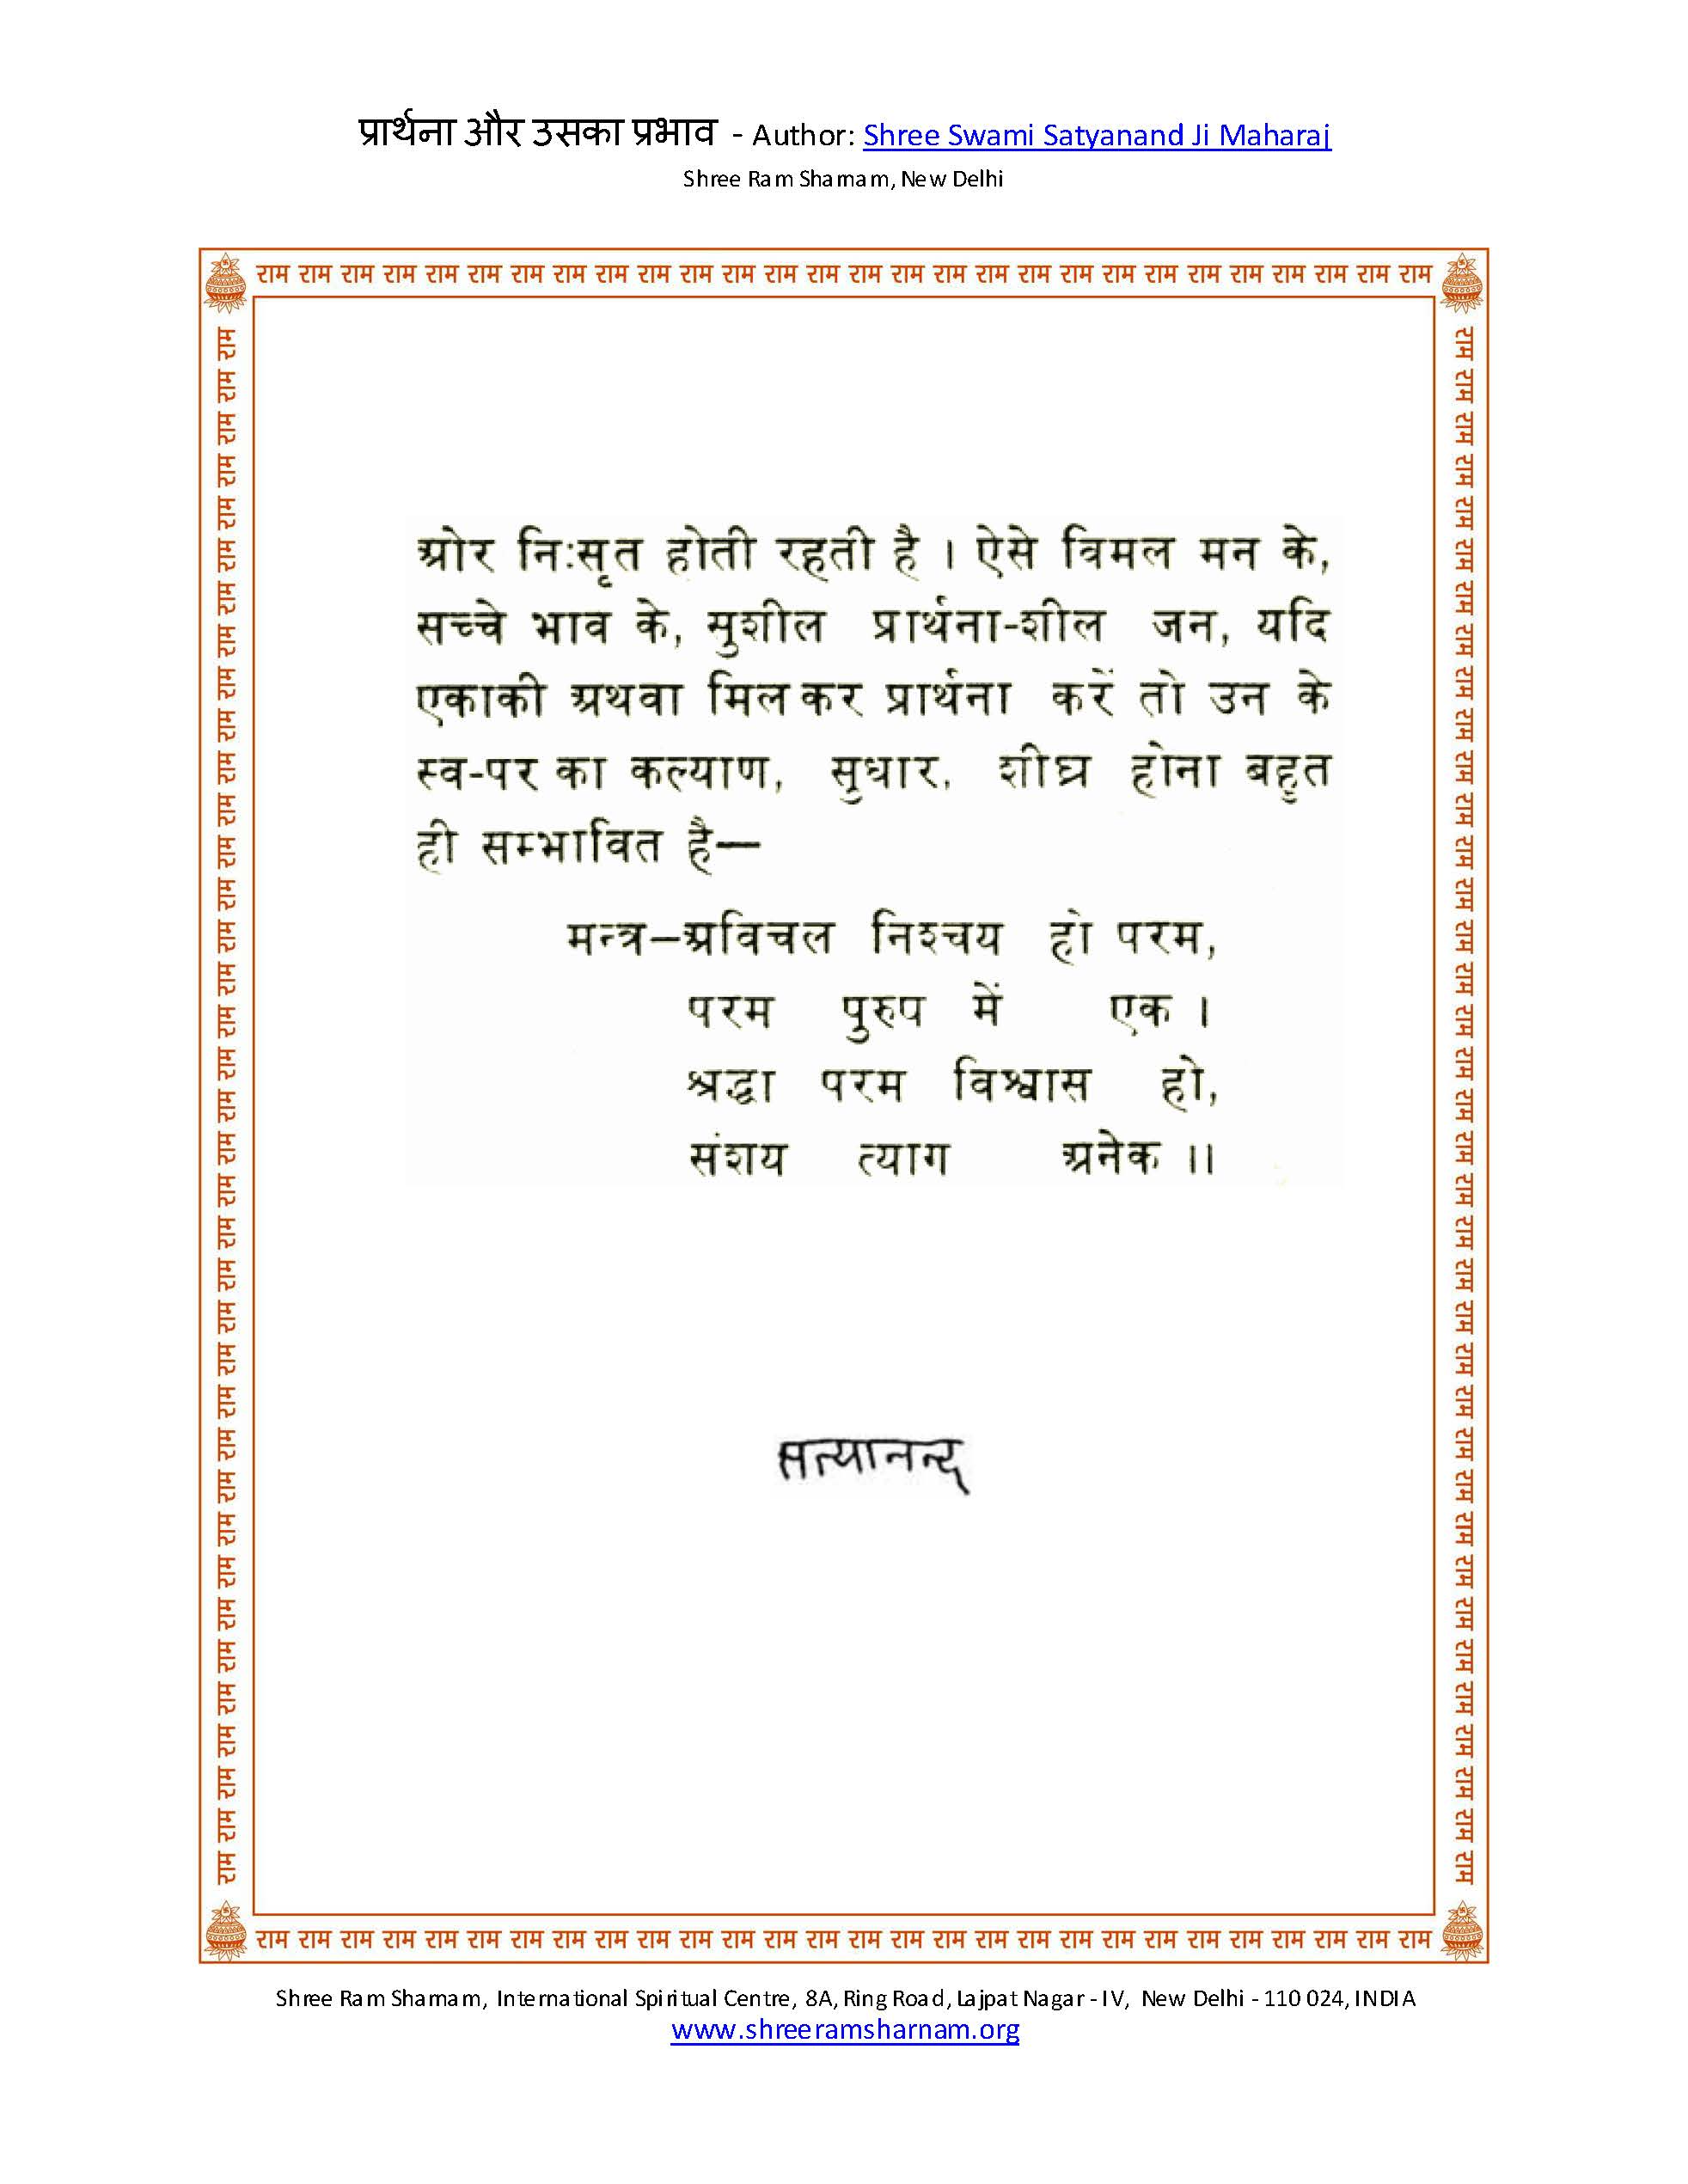 प्रार्थना और उसका प्रभाव - Author: Shree Swami Satyanand Ji Maharaj
Shree Ram Sharnam, New Delhi
राम राम राम राम राम राम राम राम राम राम राम राम राम राम राम राम राम राम राम राम राम राम राम राम राम राम राम राम
ओर निःसृत होती रहती है । ऐसे विमल मन के,
सच्चे भाव के, सुशील प्रार्थना-शील जन, यदि
एकाकी अथवा मिलकर प्रार्थना करें तो उन के
स्व-पर का कल्याण, सुधार, शीघ्र होना बहुत
ही सम्भावित है—
मन्त्र—अविचल निश्चय हो परम,
परम पुरुष में एक ।
श्रद्धा परम विश्वास हो,
संशय त्याग अनेक ।।
सत्यानन्द
राम राम राम राम राम राम राम राम राम राम राम राम राम राम राम राम राम राम राम राम राम राम राम राम राम राम राम राम
राम राम राम राम राम राम राम राम राम राम राम राम राम राम राम राम राम राम राम राम राम राम राम राम राम राम राम राम राम राम राम राम राम राम राम राम राम
राम राम राम राम राम राम राम राम राम राम राम राम राम राम राम राम राम राम राम राम राम राम राम राम राम राम राम राम राम राम राम राम राम राम राम राम राम
Shree Ram Sharnam, International Spiritual Centre, 8A, Ring Road, Lajpat Nagar - IV, New Delhi - 110 024, INDIA
www.shreeramsharnam.org